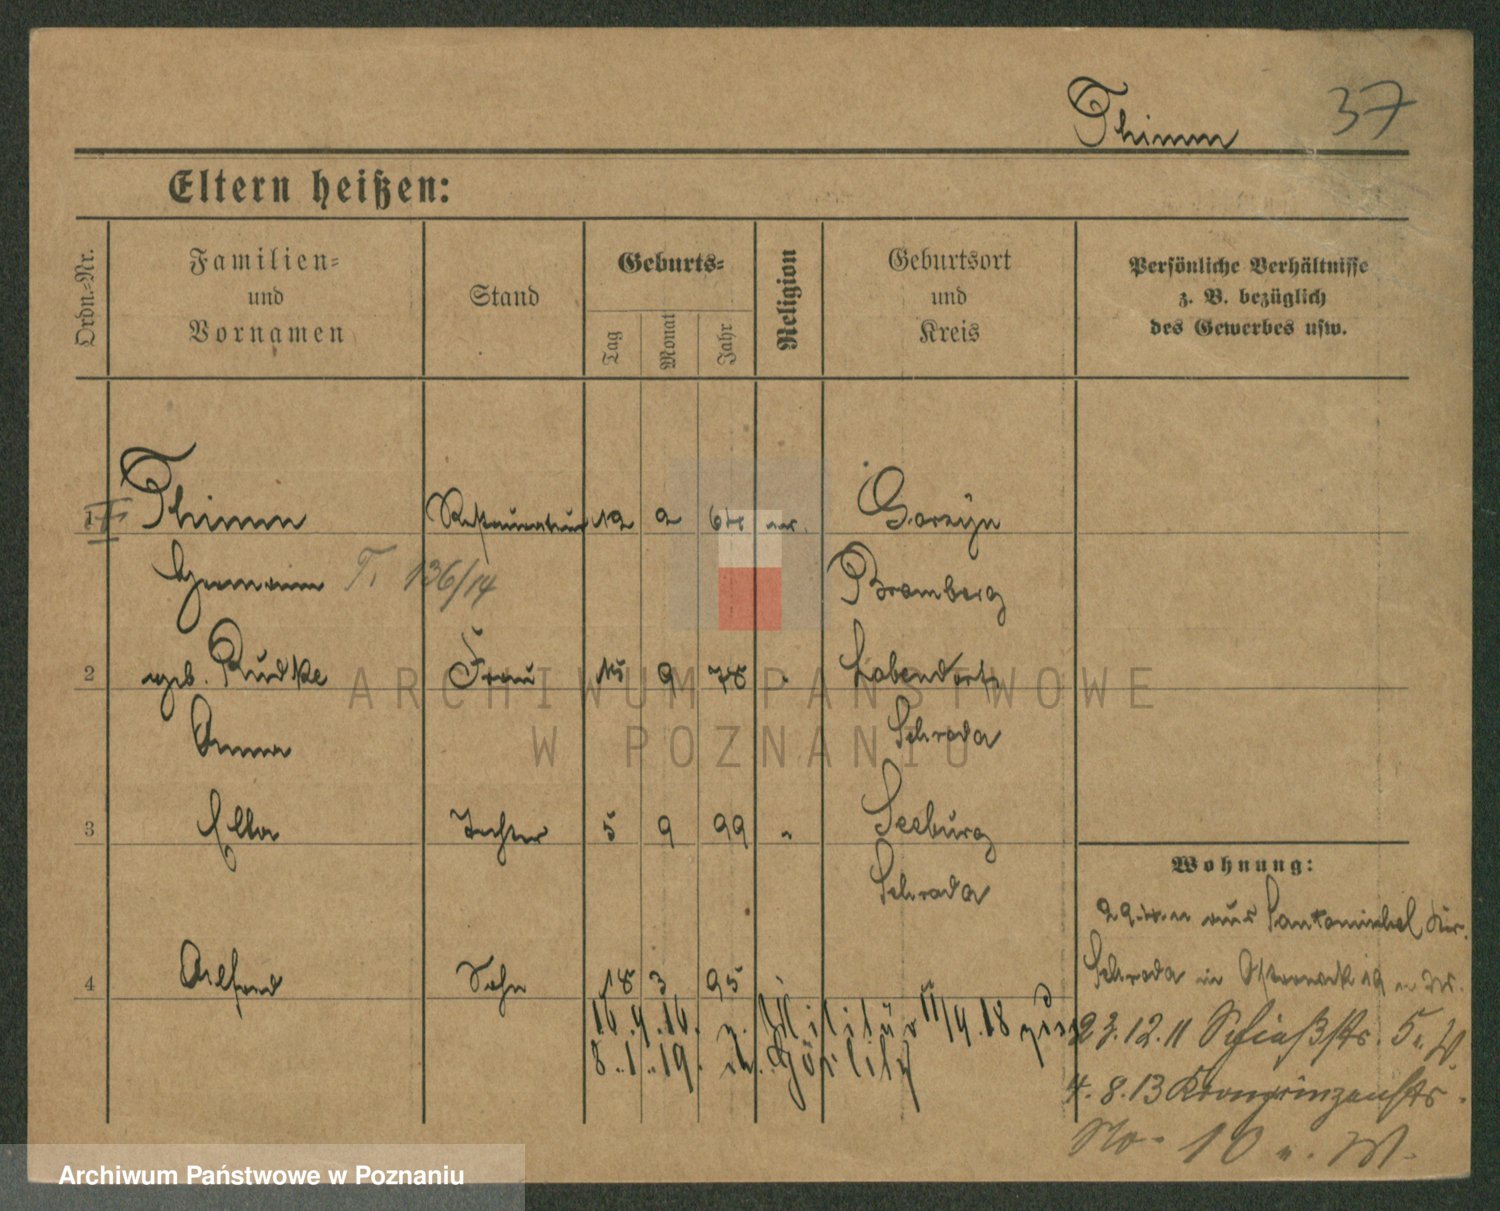 Thimm 37
Eltern heißen:
Ordn.-Nr.
Familien-
und
Vornamen
Stand
Geburts-
Tag
Monat
Jahr
Religion
Geburtsort
und
Kreis
Persönliche Verhältnisse
z. B. bezüglich
des Gewerbes usw.
1 Thimm Restaurateur 12 2 Gorzyn
Hermann T. 136/14 Bromberg
2 geb. Rudke Frau 15 9 78 " Labendorf
Anna Schroda
3 Ella Tochter 5 9 99 " Seeburg
Schroda
Wohnung:
aus Santomischel Kr.
4 Alfred Sohn 18 3 95 Schroda in
16.4.16. z. Militär 11/4.18
23.12.11 Schießstr. 5
8.1.19. Görlitz
4.8.13 Kronprinzenstr.
No 10
ARCHIWUM PAŃSTWOWE
W POZNANIU
Archiwum Państwowe w Poznaniu